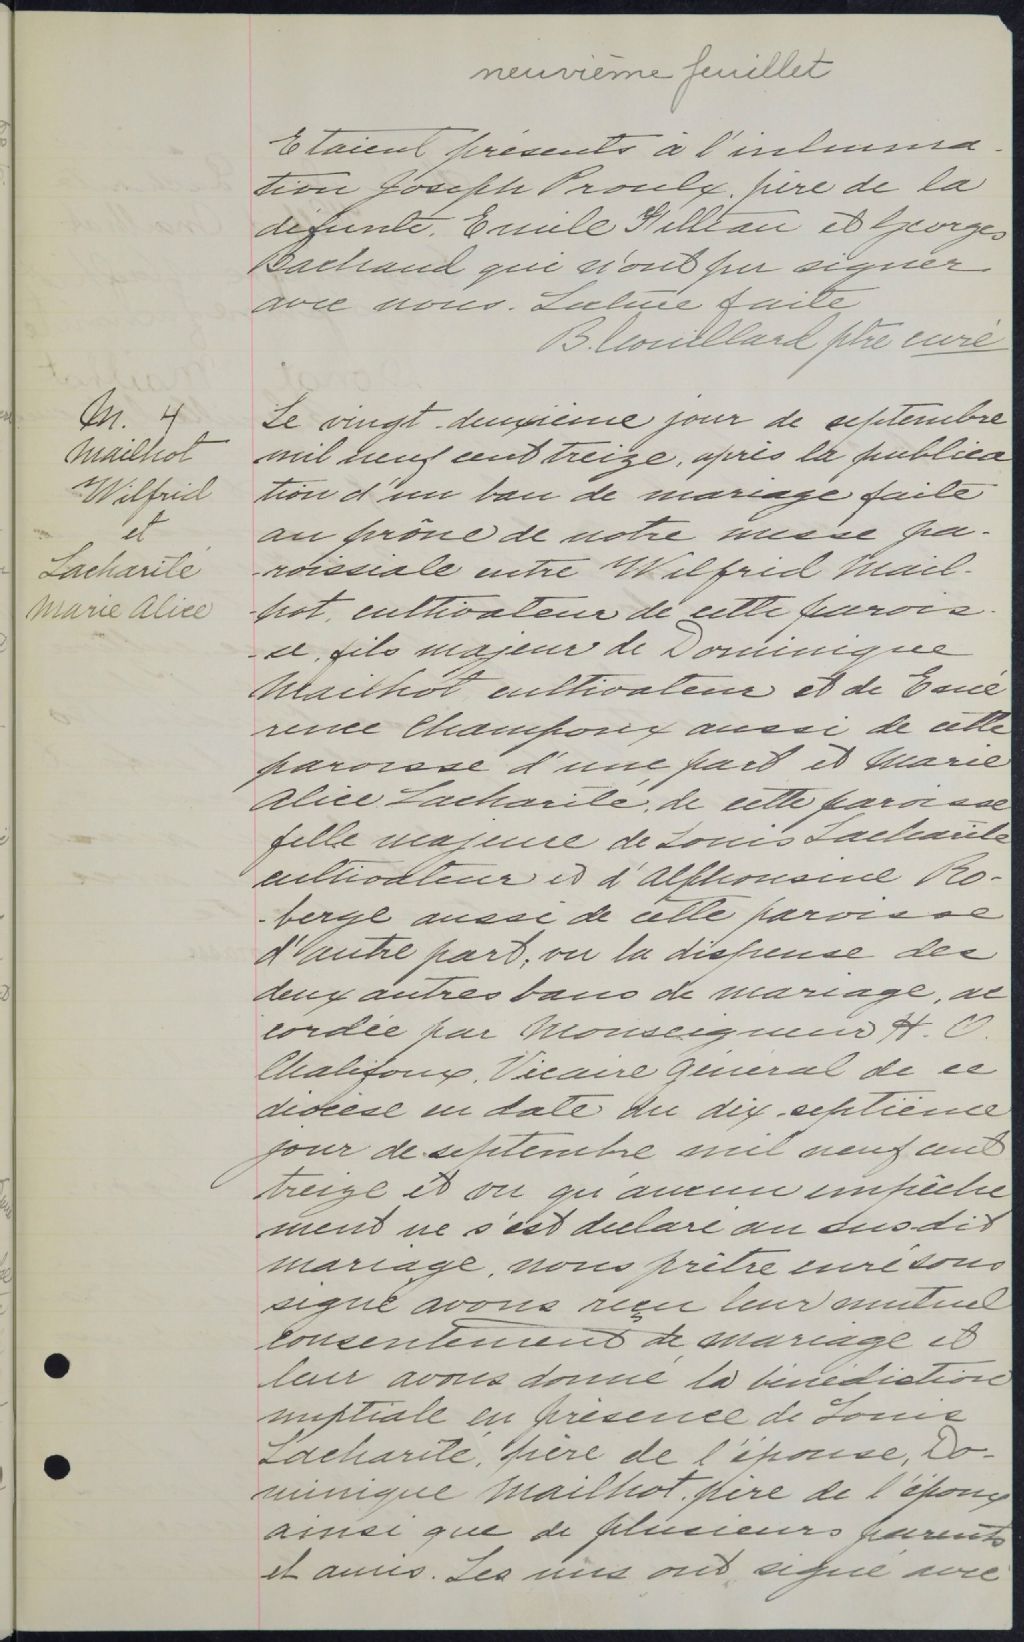 neuvième feuillet
Etaient présents à l'inhuma-
tion Joseph Proulx, père de la
défunte, Emile Filteau et Georges
Bachand qui n'ont pu signer
avec nous. Lecture faite
B. Couillard ptre curé
M. 4
Mailhot
Wilfrid
et
Lacharité
Marie Alice
Le vingt-deuxième jour de septembre
mil neuf cent treize, après la publica
tion d'un ban de mariage faite
au prône de notre messe pa-
-roissiale entre Wilfrid Mail-
-hot, cultivateur de cette parois-
-se, fils majeur de Dominique
Mailhot cultivateur et de Emé
rence Champoux aussi de cette
paroisse d'une part et Marie
Alice Lacharité, de cette paroisse
fille majeure de Louis Lacharité
cultivateur et d'Alphonsine Ro-
-berge aussi de cette paroisse
d'autre part, vu la dispense des
deux autres bans de mariage, ac
cordée par Monseigneur H. O.
Chalifoux, Vicaire Général de ce
diocèse en date du dix-septième
jour de septembre mil neuf cent
treize et vu qu'aucun empêche
ment ne s'est déclaré au susdit
mariage, nous prêtre curé sous
signé avons reçu leur mutuel
consentement de mariage et
leur avons donné la bénédiction
nuptiale en présence de Louis
Lacharité, père de l'épouse, Do-
minique Mailhot, père de l'époux
ainsi que de plusieurs parents
et amis. Les uns ont signé avec